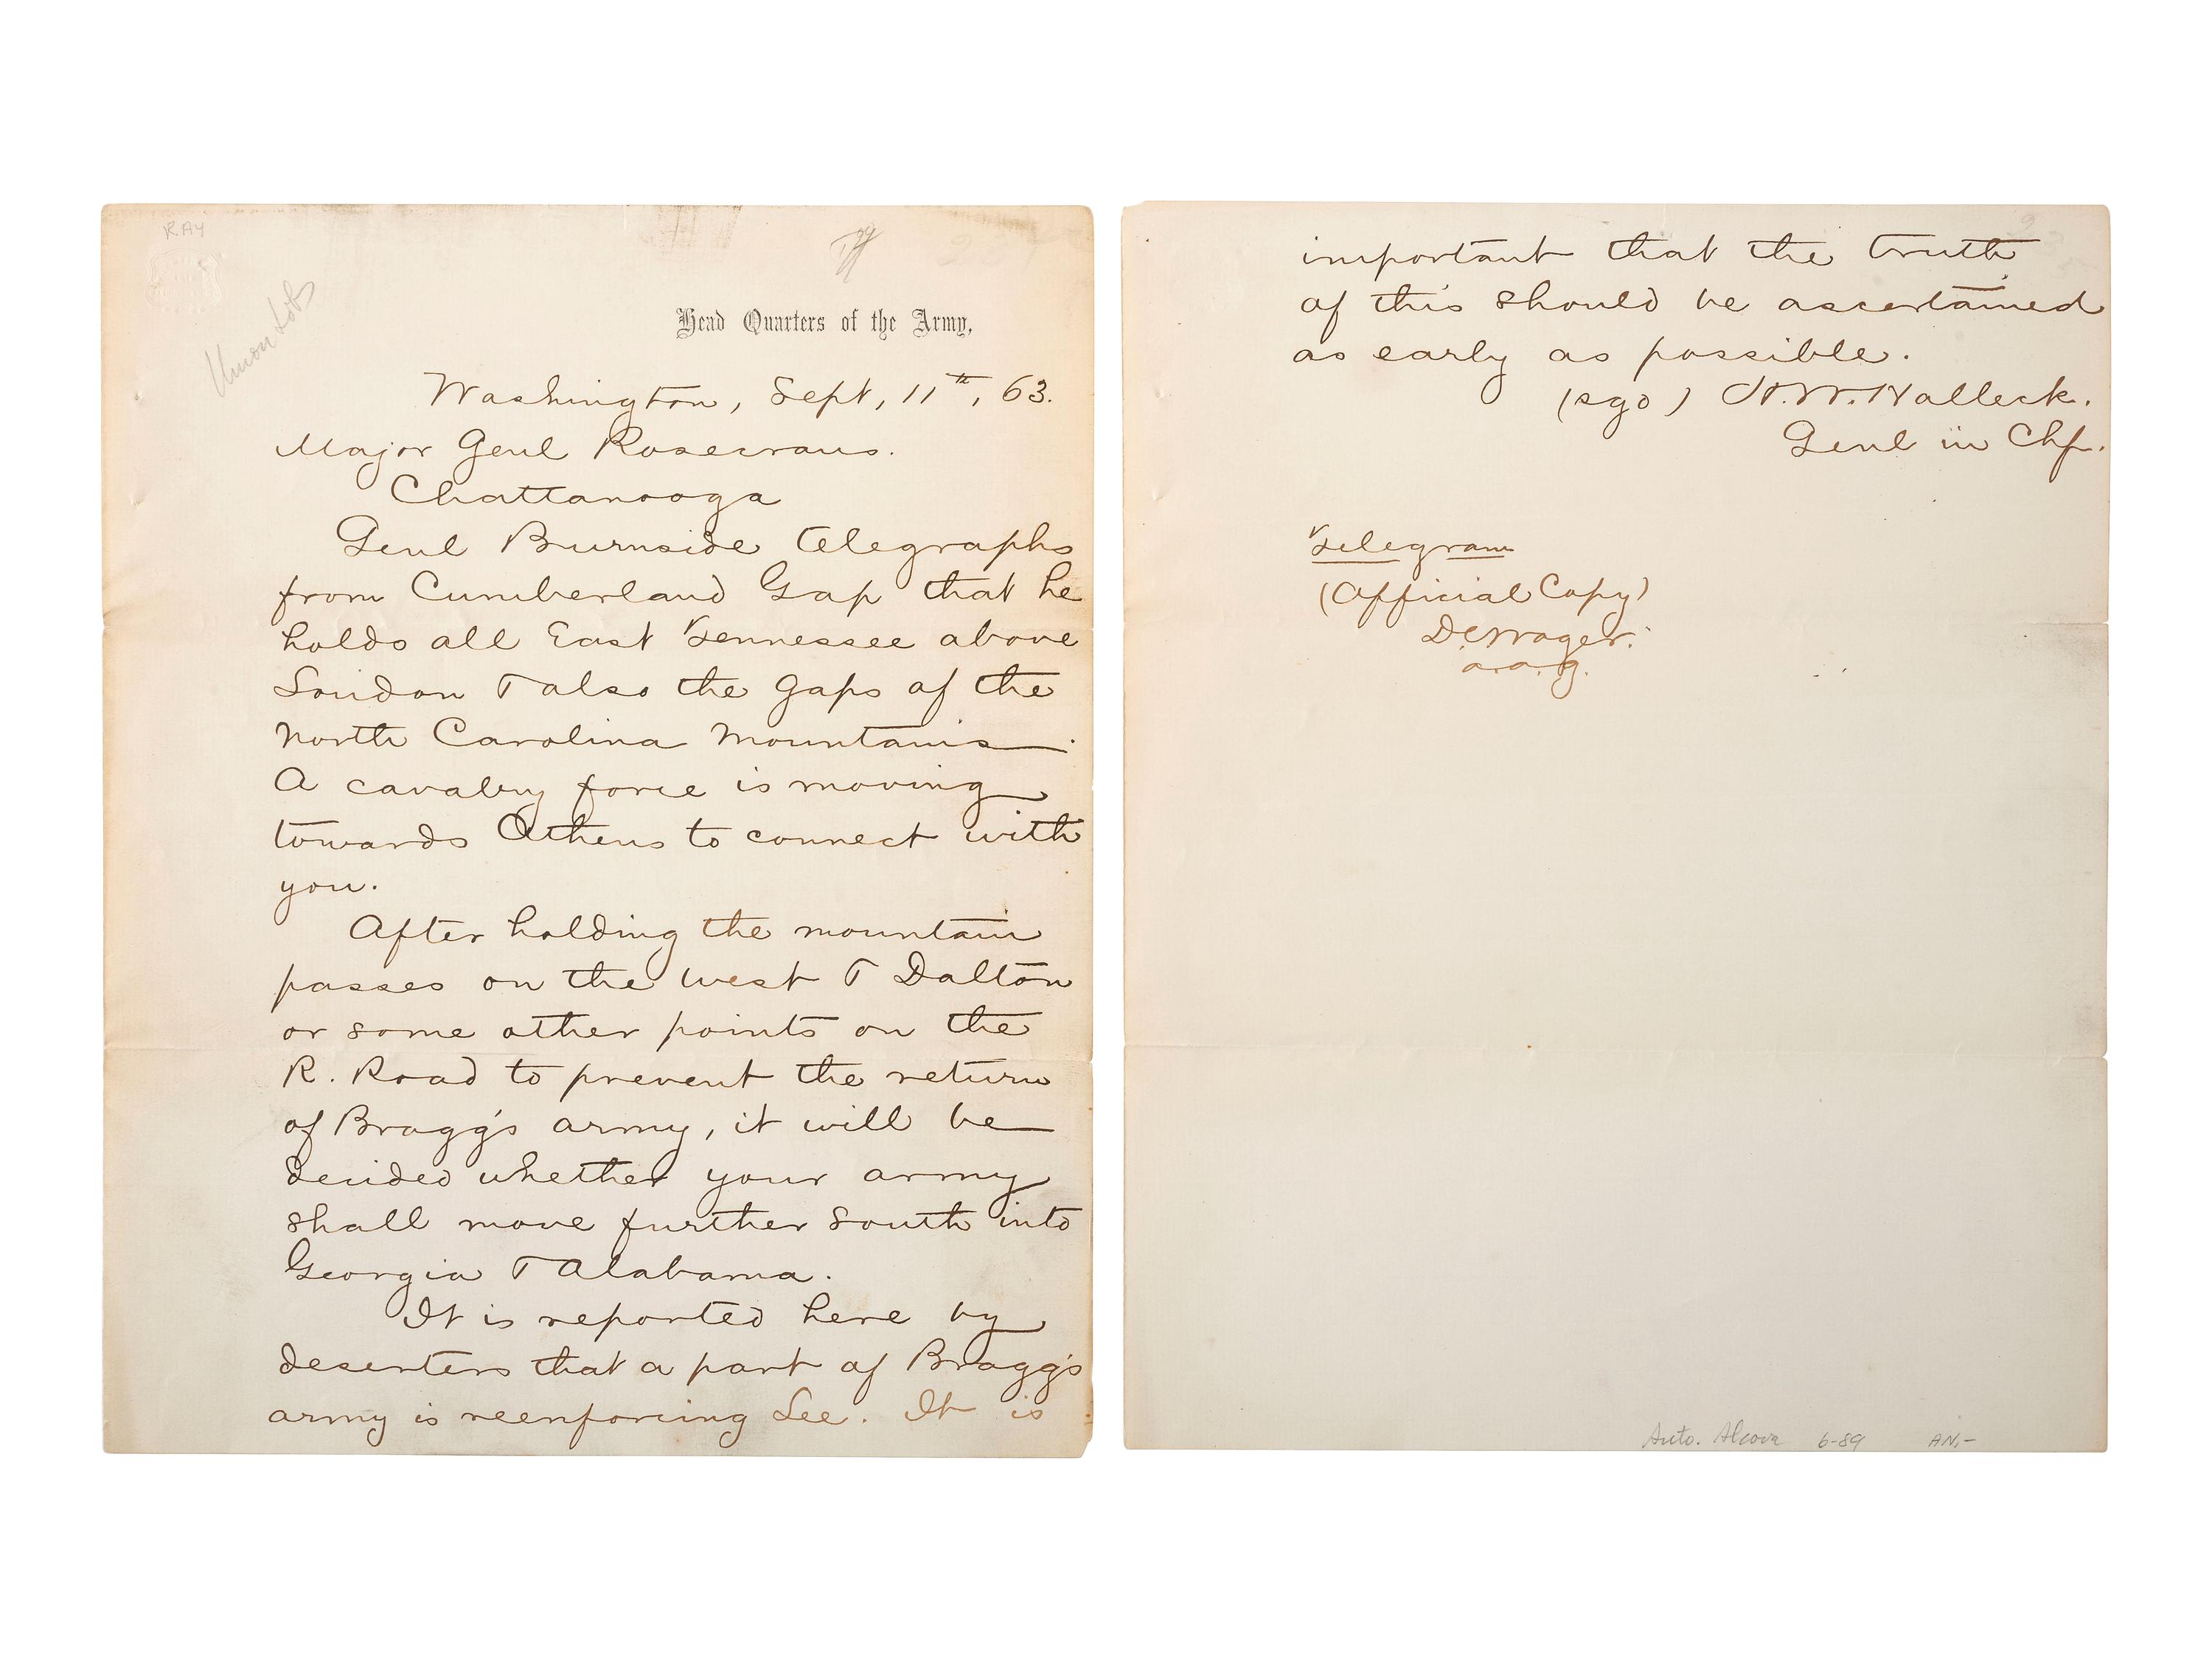 RAY
Head Quarters of the Army,
Washington, Sept, 11th, 63.
Major Genl Rosecrans.
Chattanooga
Genl Burnside telegraphs
from Cumberland Gap that he
holds all East Tennessee above
Loudon & also the gaps of the
North Carolina Mountains.
A cavalry force is moving
towards Athens to connect with
you.
After holding the mountain
passes on the west & Dalton
or some other points on the
R. Road to prevent the return
of Bragg's army, it will be
decided whether your army
shall move further south into
Georgia & Alabama.
It is reported here by
deserters that a part of Bragg's
army is reenforcing Lee. It is
important that the truth
of this should be ascertained
as early as possible.
(sgd) H. W. Halleck.
Genl in Chf.
Telegram
(Official Copy)
D.C. Wager.
a.a.g.
Auto. Alcove 6-89 AN,-